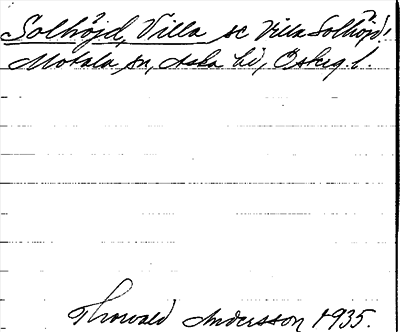 Solhöjd, Villa se Villa Solhöjd!
Motala sn, Aska hd, Östg. l.
Thorvald Andersson 1935.